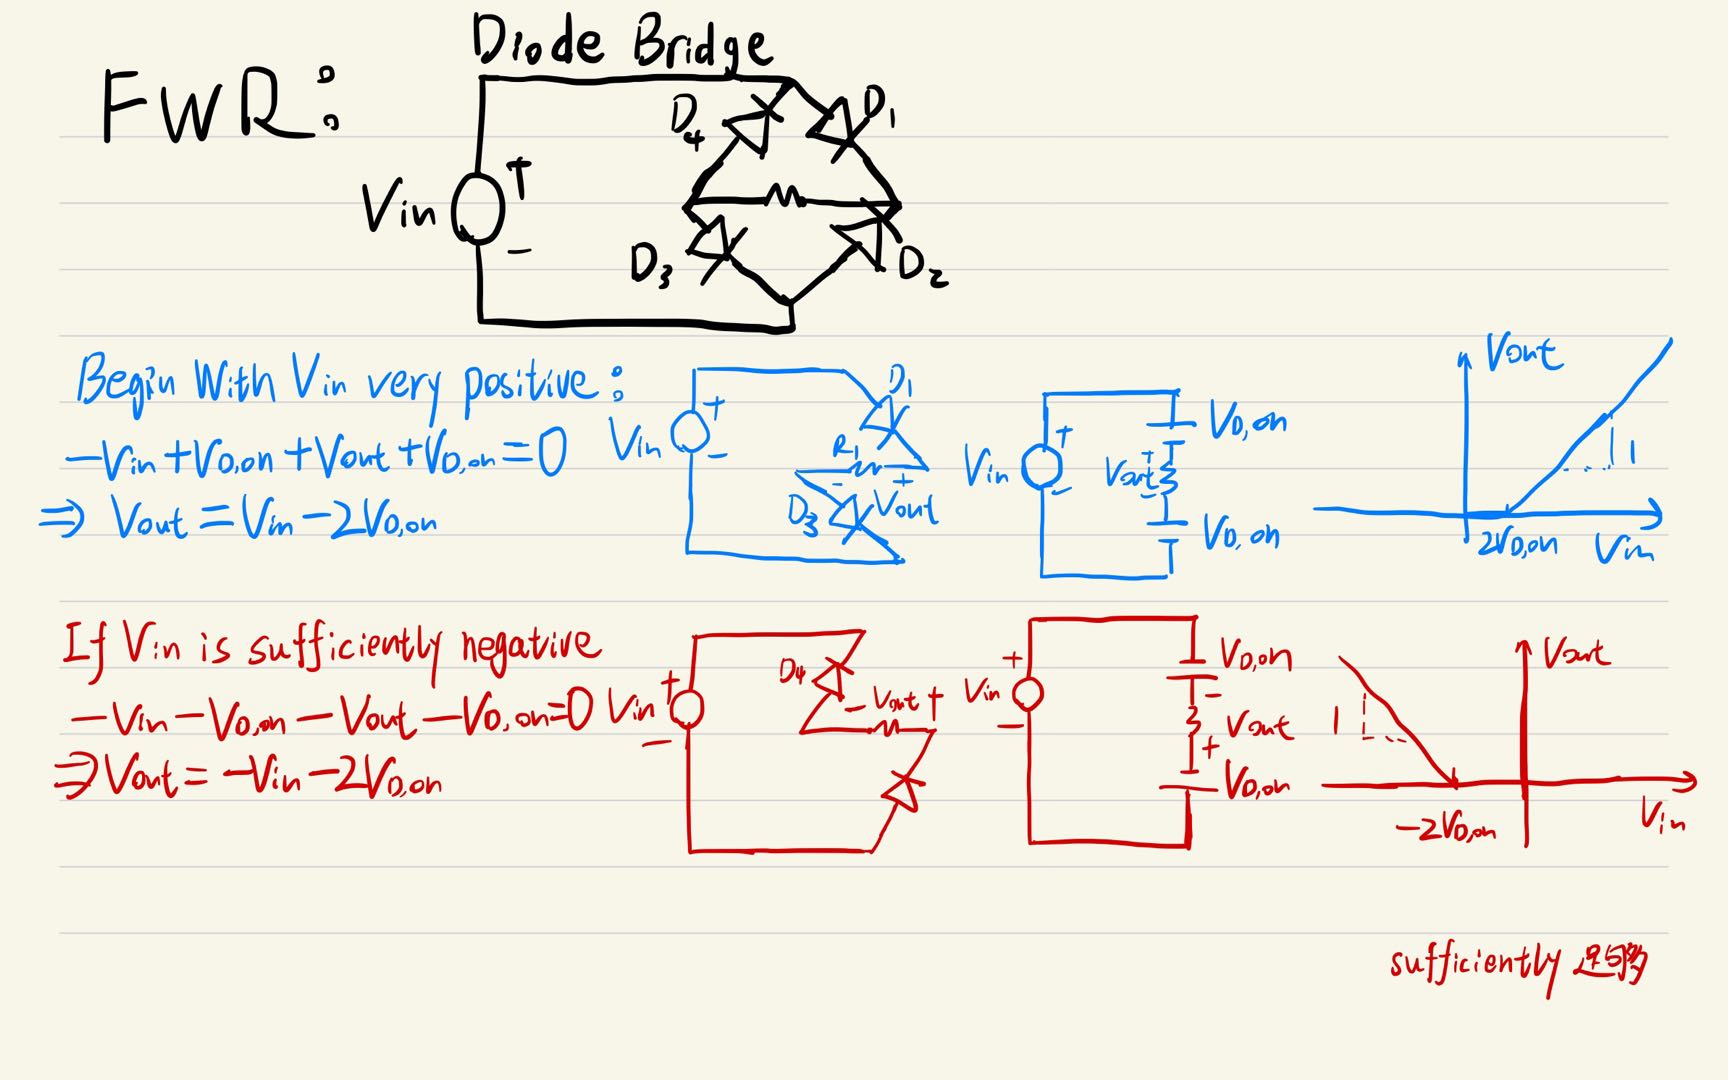 Diode Bridge
FWR:
D4
D1
Vin
+
−
D3
D2
Begin With Vin very positive:
−Vin+VD,on+Vout+VD,on=0
⇒ Vout=Vin−2VD,on
Vin
+
−
D1
R1
−
+
D3
Vout
Vin
+
−
VD,on
+
Vout
−
VD,on
Vout
1
2VD,on
Vin
If Vin is sufficiently negative
−Vin−VD,on−Vout−VD,on=0
⇒Vout=−Vin−2VD,on
Vin
+
−
D4
− Vout +
+
Vin
−
VD,on
−
Vout
+
VD,on
Vout
1
−2VD,on
Vin
sufficiently 足够